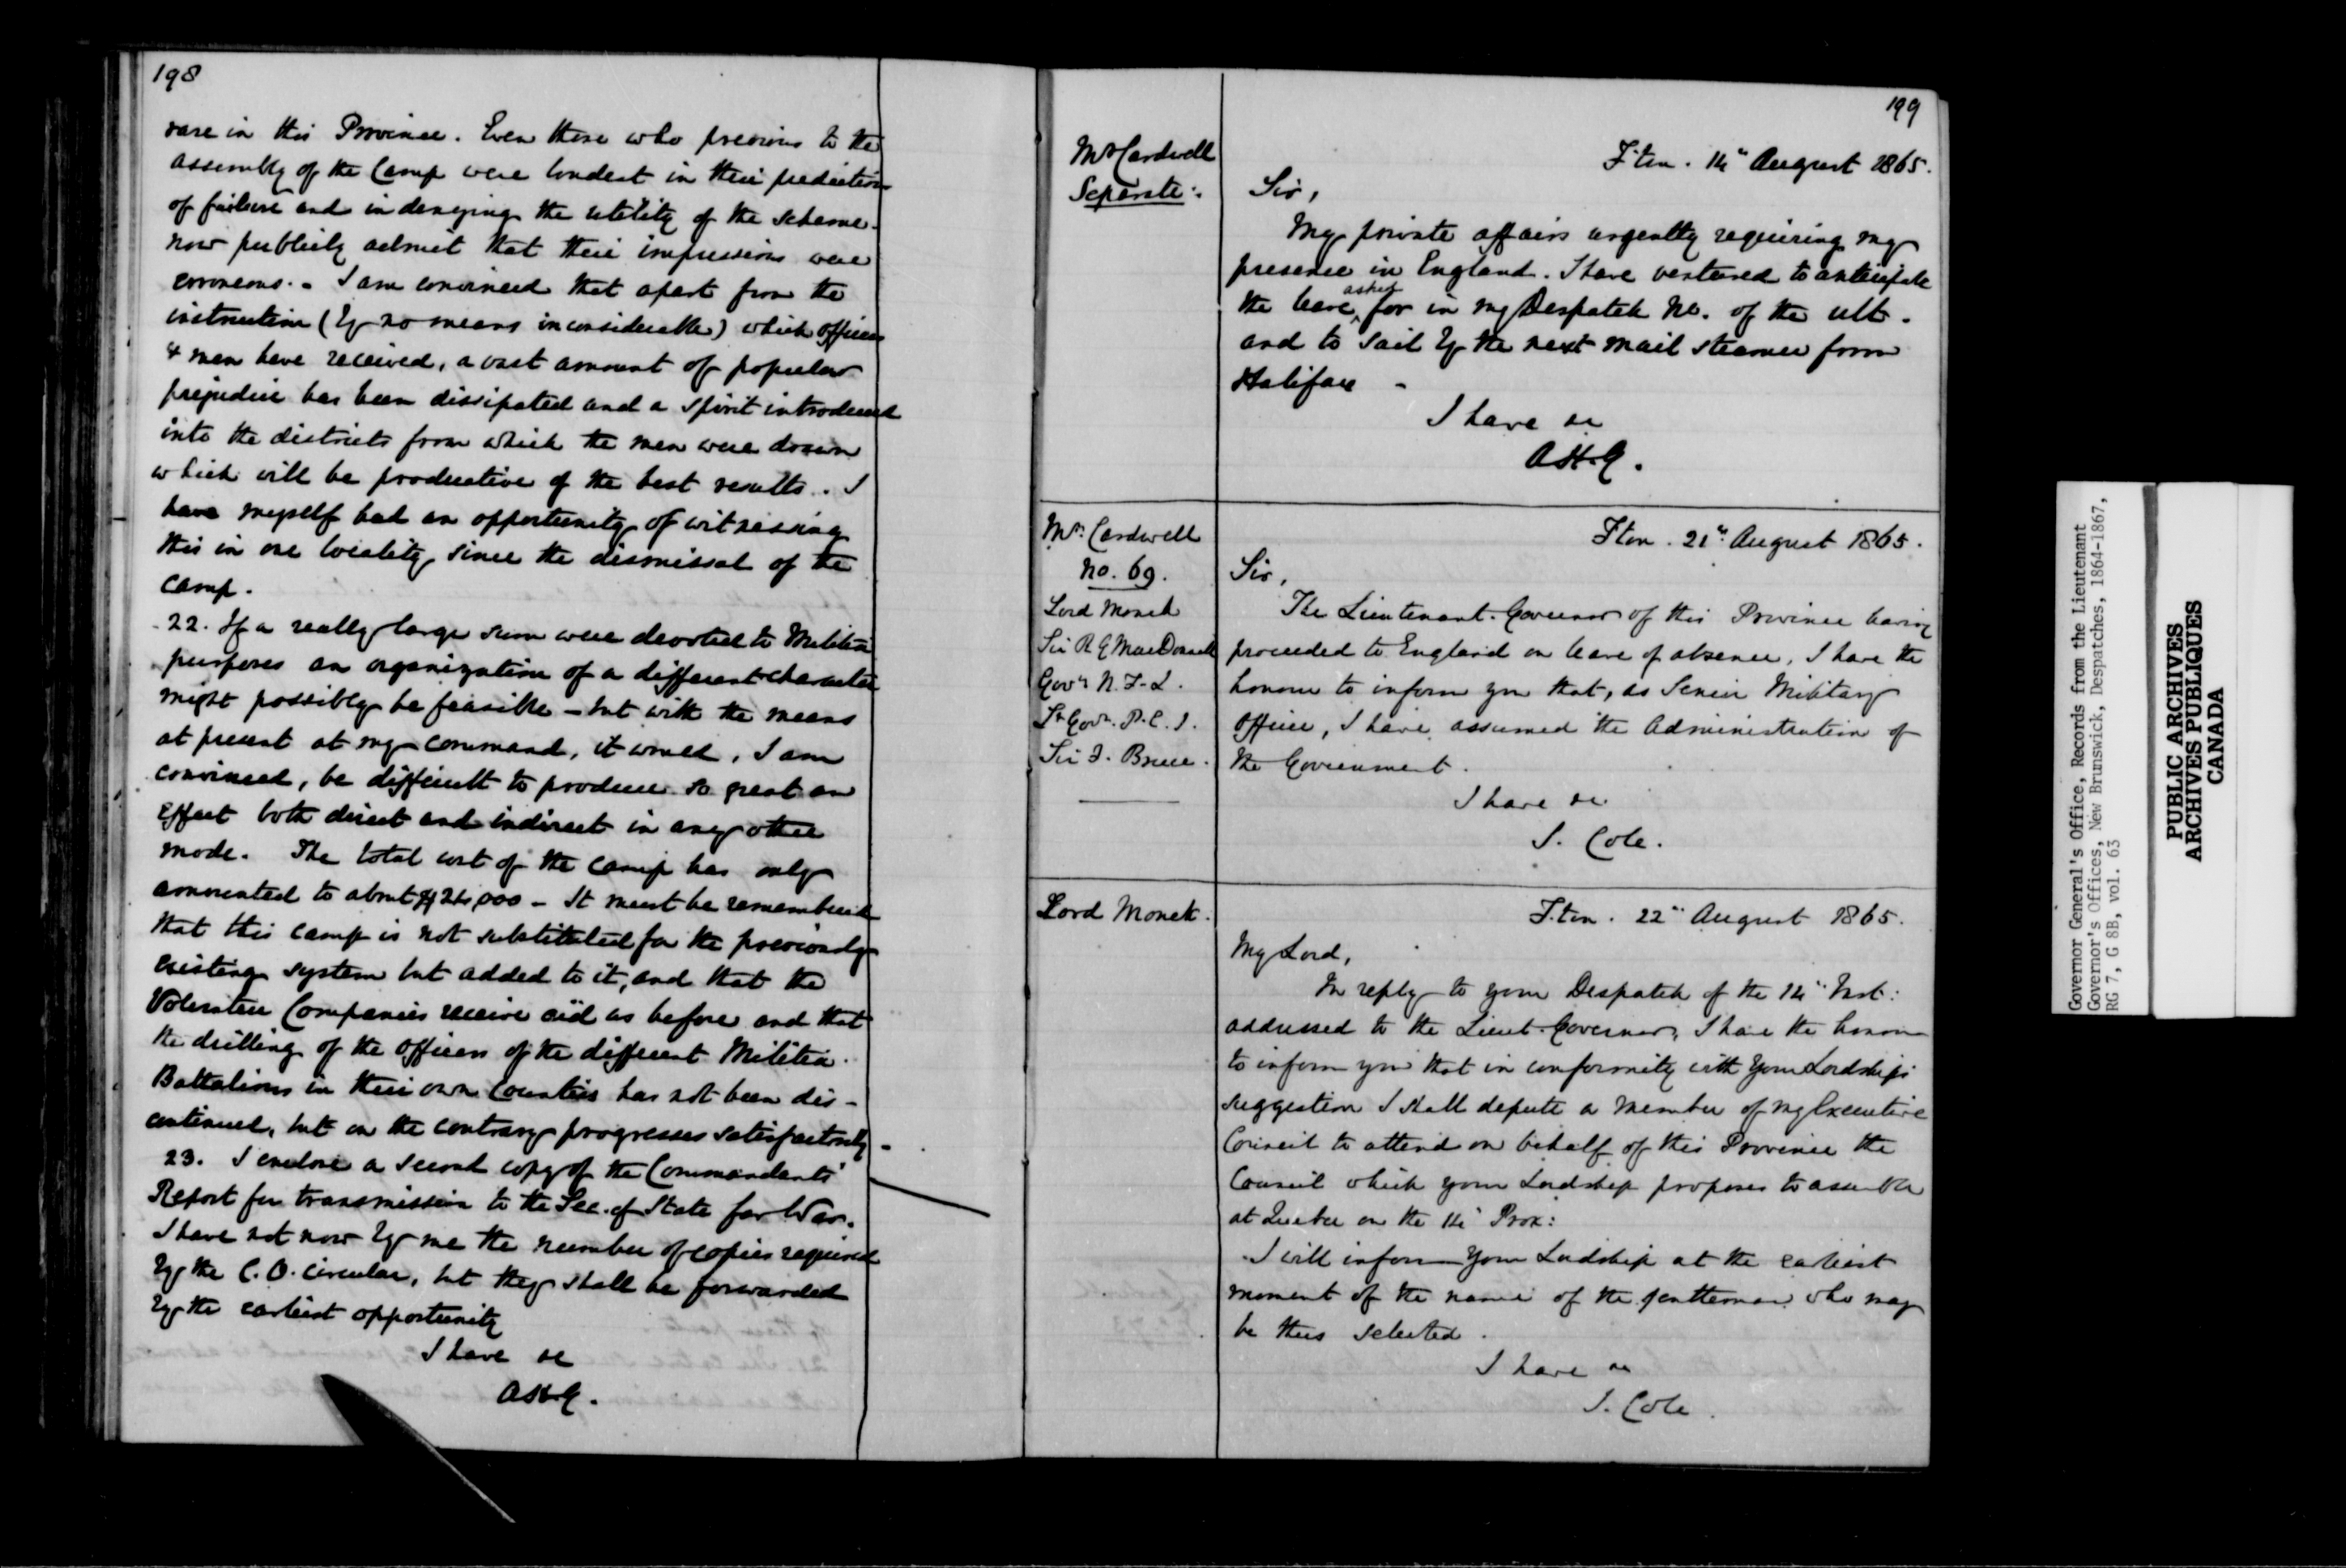 198
rare in this Province. Even those who previous to the
assembly of the Camp were loudest in their predictions
of failure and in denying the utility of the scheme
now publicly admit that their impressions were
erroneous. - I am convinced that apart from the
instruction (by no means inconsiderable) which officers
& men have received, a vast amount of popular
prejudice has been dissipated and a spirit introduced
into the districts from which the men were drawn
which will be productive of the best results. I
have myself had an opportunity of witnessing
this in one locality since the dismissal of the
Camp.
22. If a really large sum were devoted to Militia
purposes an organization of a different character
might possibly be feasible - but with the means
at present at my command, it would, I am
convinced, be difficult to produce so great an
effect both direct and indirect in any other
mode. The total cost of the camp has only
amounted to about $24,000 - It must be remembered
that this camp is not substituted for the previously
existing system but added to it, and that the
Volunteer Companies receive aid as before and that
the drilling of the Officers of the different Militia
Battalions in their own Counties has not been dis-
continued, but on the contrary progresses satisfactorily -
23. I enclose a second copy of the Commandants'
Report for transmission to the Sec. of State for War.
I have not now by me the number of copies required
by the C.O. circular, but they shall be forwarded
by the earliest opportunity
I have &c
A.H.G.
199
Mr Cardwell
Separate:
F'ton. 14" August 1865.
Sir,
My private affairs urgently requiring my
presence in England. I have ventured to anticipate
the leave ^asked for in my Despatch No. of the ult.
and to sail by the next mail steamer from
Halifax -
I have &c
A.H.G.
Mr. Cardwell
No. 69.
Lord Monck
Sir R G MacDonnell
Govr N.F.L.
Lt Govr. P.E.I.
Sir F. Bruce.
F'ton. 21" August 1865.
Sir,
The Lieutenant-Governor of this Province having
proceeded to England on leave of absence, I have the
honour to inform you that, as Senior Military
Officer, I have assumed the Administration of
the Government.
I have &c
J. Cole.
Lord Monck.
F.ton. 22" August 1865.
My Lord,
In reply to your Despatch of the 14" Inst:
addressed to the Lieut-Governor, I have the honour
to inform you that in conformity with your Lordship's
suggestion I shall depute a Member of my Executive
Council to attend on behalf of this Province the
Council which your Lordship proposes to assemble
at Quebec on the 14" Prox:
I will inform your Lordship at the earliest
moment of the name of the gentleman who may
be thus selected.
I have &c
J. Cole.
Governor General's Office, Records from the Lieutenant
Governor's Offices, New Brunswick, Despatches, 1864-1867,
RG 7, G 8B, vol. 63
PUBLIC ARCHIVES
ARCHIVES PUBLIQUES
CANADA